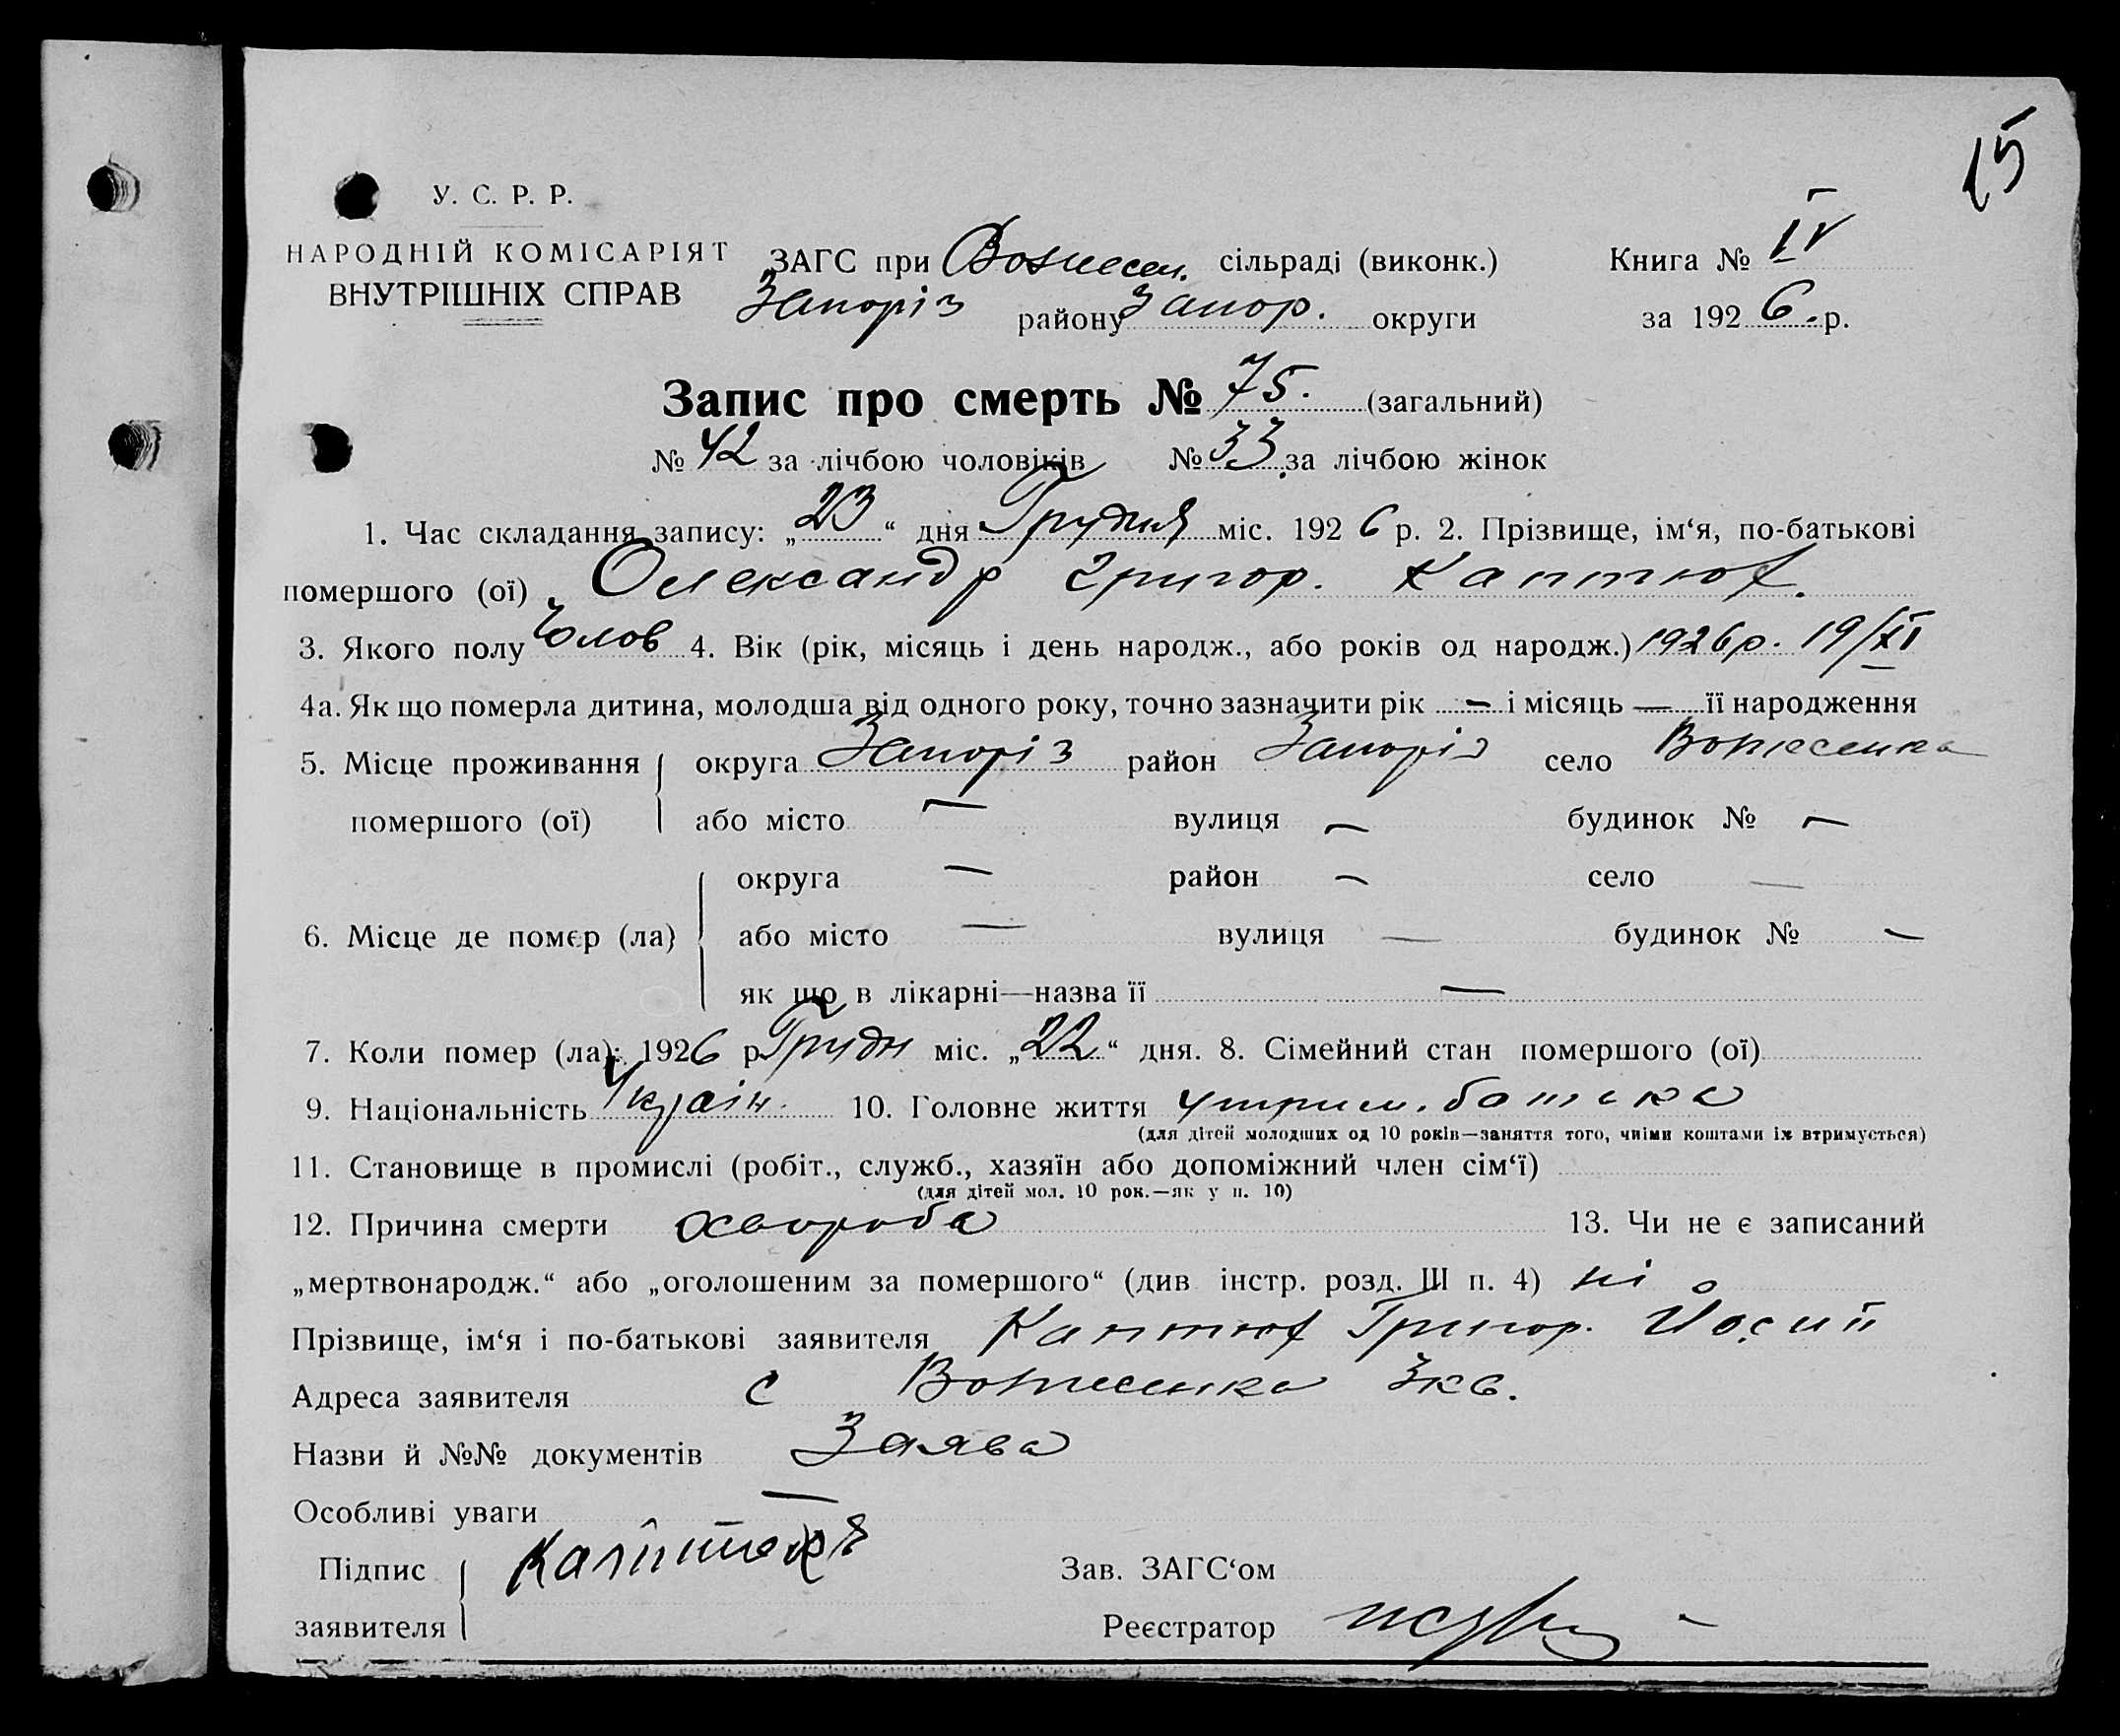 15
У. С. Р. Р.
НАРОДНІЙ КОМІСАРІЯТ
ВНУТРІШНІХ СПРАВ
ЗАГС при Вознесен. сільраді (виконк.)
Запоріз району Запор. округи
Книга № IV
за 1926 р.
Запис про смерть № 75. (загальний)
№ 42 за лічбою чоловіків № 33 за лічбою жінок
1. Час складання запису: „23“ дня Грудня міс. 1926 р. 2. Прізвище, ім‘я, по-батькові
помершого (ої) Олександр Григор. Каптюх.
3. Якого полу Чолов 4. Вік (рік, місяць і день народж., або років од народж.) 1926 р. 19/XI
4а. Як що померла дитина, молодша від одного року, точно зазначити рік — і місяць — її народження
5. Місце проживання округа Запоріз район Запоріз село Вознесенка
помершого (ої) або місто — вулиця — будинок № —
округа — район — село —
6. Місце де помер (ла) або місто — вулиця — будинок № —
як що в лікарні—назва її —
7. Коли помер (ла): 1926 р Грудн міс. „22“ дня. 8. Сімейний стан помершого (ої)
9. Національність Украін. 10. Головне життя утрим. батька
(для дітей молодших од 10 років—заняття того, чиїми коштами їх втримується)
11. Становище в промислі (робіт., служб., хазяїн або допоміжний член сім‘ї)
(для дітей мол. 10 рок.—як у п. 10)
12. Причина смерти хвороба 13. Чи не є записаний
„мертвонародж.“ або „оголошеним за помершого“ (див інстр. розд. III п. 4) ні
Прізвище, ім‘я і по-батькові заявителя Каптюх Григор. Йосип
Адреса заявителя с Вознесенка 3 кв.
Назви й №№ документів Заява
Особливі уваги —
Підпис Зав. ЗАГС‘ом
заявителя Реєстратор